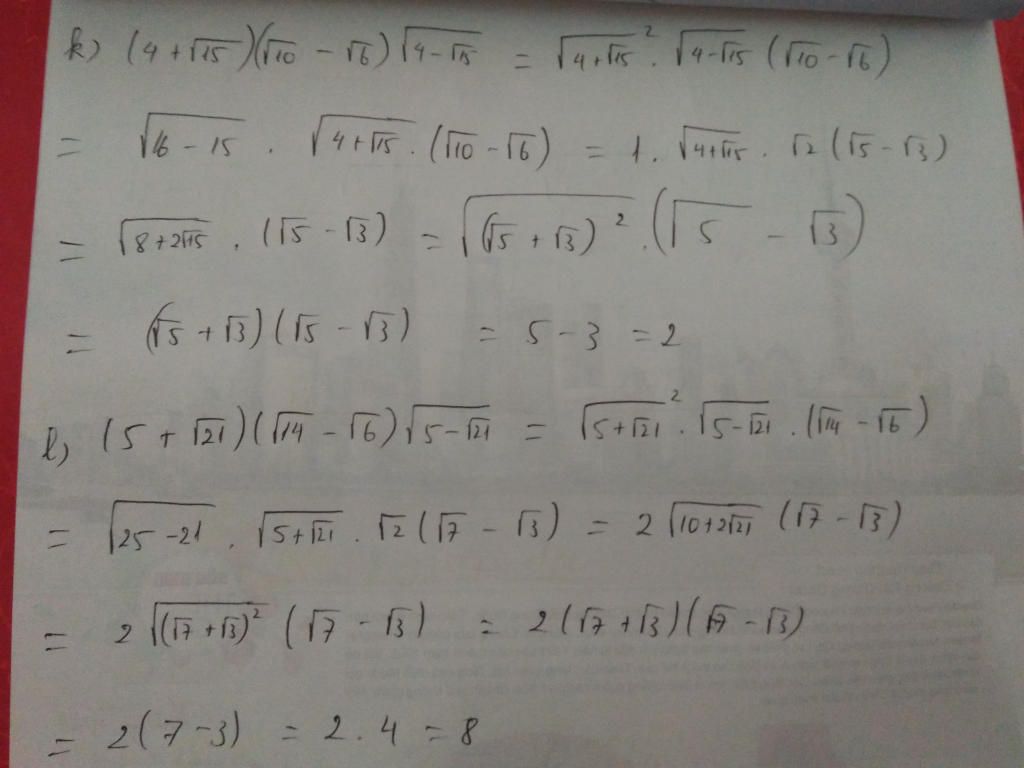 k) (4 + √15)(√10 − √6)√(4−√15) = √(4+√15)² . √(4−√15) (√10 − √6)
= √(16 − 15) . √(4+√15) . (√10 − √6) = 1. √(4+√15) . √2 (√5 − √3)
= √(8+2√15) . (√5 − √3) = √((√5 + √3)²) . (√5 − √3)
= (√5 + √3)(√5 − √3) = 5 − 3 = 2
l) (5 + √21)(√14 − √6)√(5−√21) = √(5+√21)² . √(5−√21) . (√14 − √6)
= √(25 −21) . √(5+√21) . √2 (√7 − √3) = 2√(10+2√21) (√7 − √3)
= 2 √((√7 + √3)²) (√7 − √3) = 2(√7 + √3)(√7 − √3)
= 2(7−3) = 2 . 4 = 8